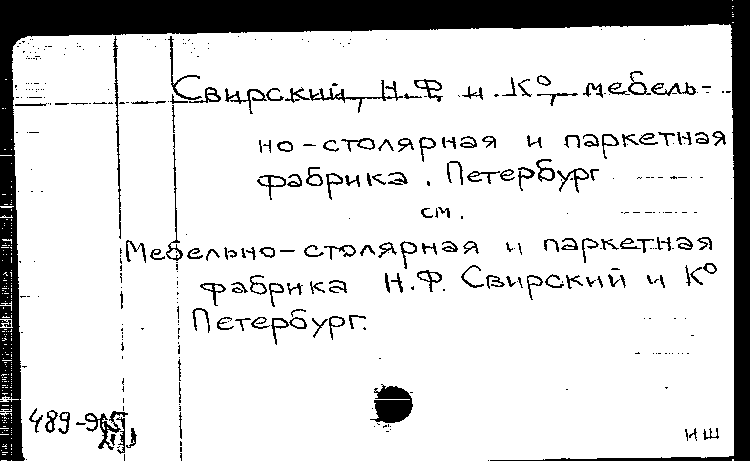 Свирский, Н.Ф. и К⁰, мебель-
но-столярная и паркетная
фабрика. Петербург
см.
Мебельно-столярная и паркетная
фабрика Н.Ф. Свирский и К⁰
Петербург.
нш